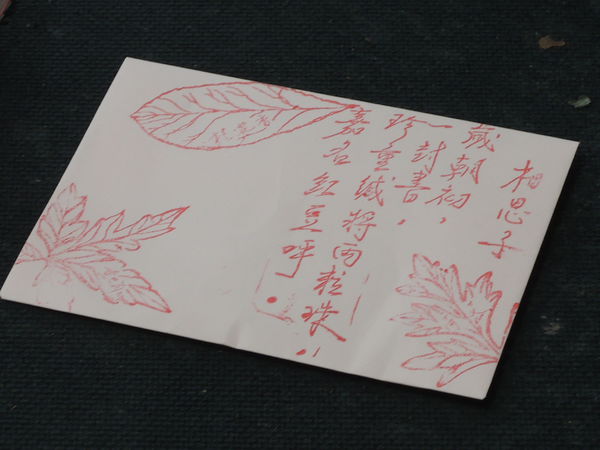 相思子
歲朝初，
一封書，
珍重緘將兩粒珠，
嘉名紅豆呼。